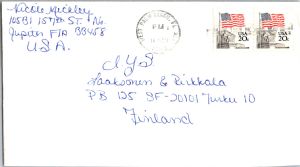 Nicole Mickley
10591 157th St. No.
Jupiter Fla 33458
U.S.A.
PM
USA
20c
USA
20c
IYS
Laaksonen & Pirkkala
PB 125 SF-20101 Turku 10
Finland